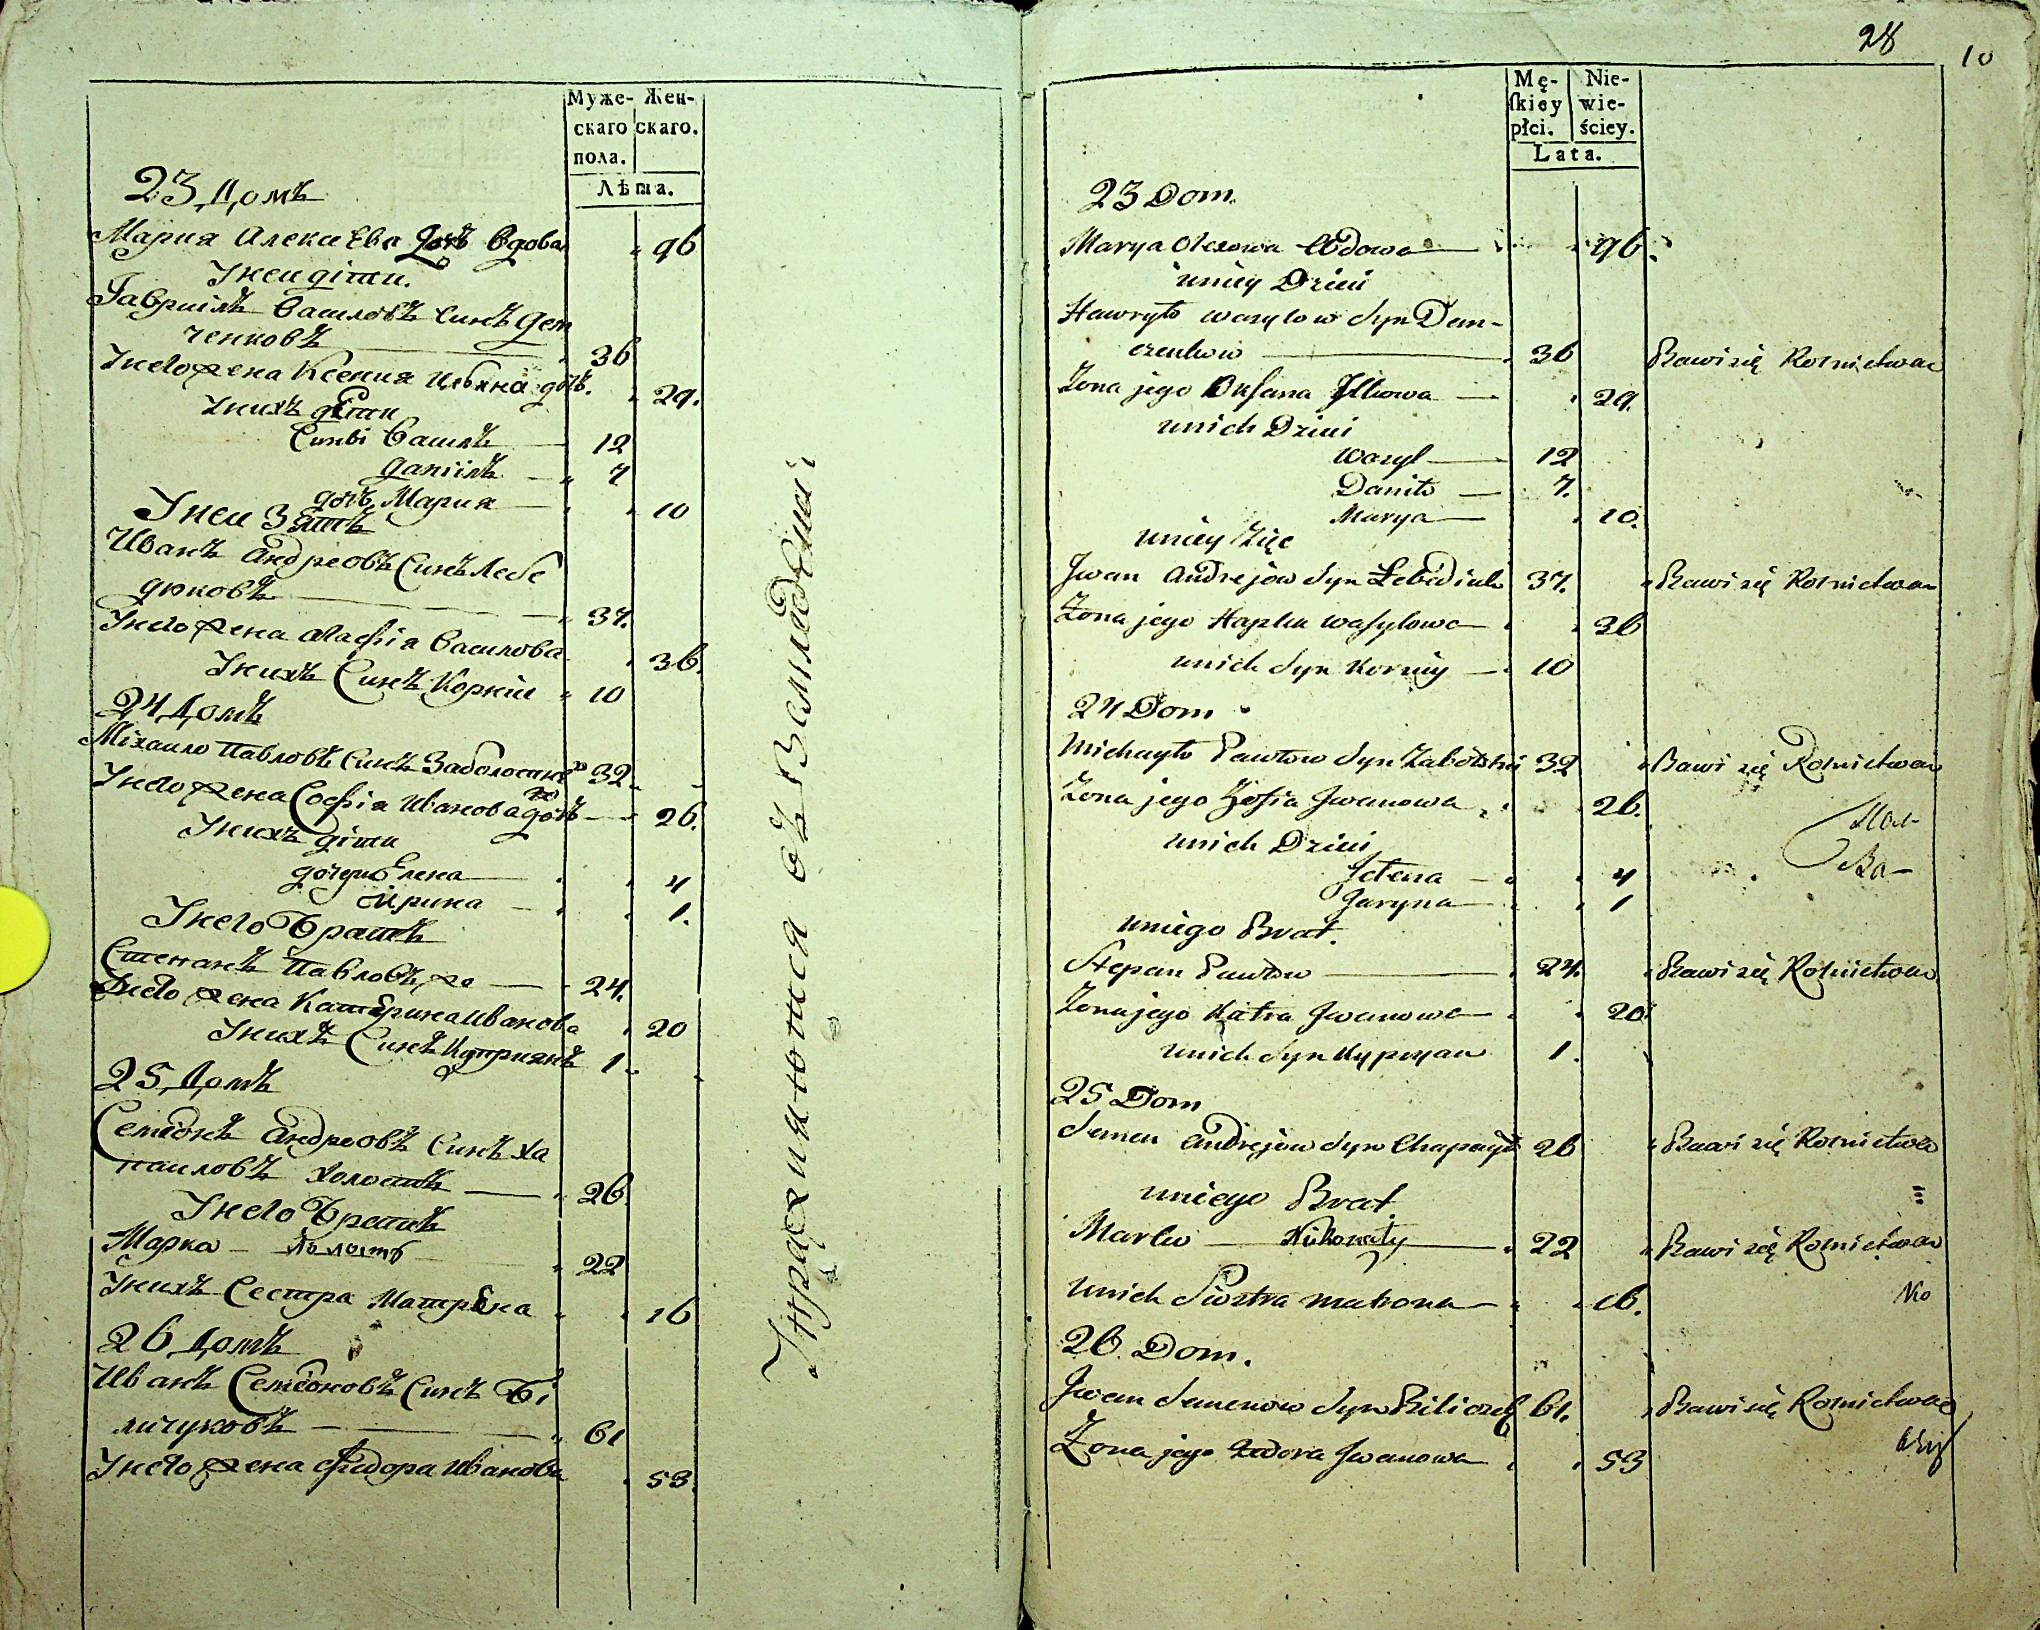 Муже- Жен-
скаго скаго.
пола.
Лѣта.
23 Домъ
Мария Алексѣева дочъ вдова 96
У неи дѣти.
Гавриілъ Василовъ синъ Дем
ченковъ 36
У него жена Ксения Ильина дочъ. 29.
У нихъ дѣти
Сини Василь 12
Даніилъ 7
дочъ Мария 10
У неи Зять
Иванъ Андреовъ Синъ Лебе
дюковъ 37.
У него жена Агафія Василова 36.
У нихъ Синъ Корній 10
24 Домъ
Міхаило Павловъ Синъ Заболотній 32
У него жена Софія Иванова дочъ 26.
У нихъ діти
дочери Елена 4
Ирина 1.
У него Братъ
Степанъ Павловъ же 24.
У него жена Катерина Иванова 20
У нихъ Синъ Куприянъ 1
25 Домъ
Семіонъ Андреовъ Синъ Ха
паиловъ холостъ 26
У него Братъ
Марко холостъ 22
У нихъ Сестра Матрѣна 16
26 Домъ
Иванъ Семіоновъ Синъ Бі
личуковъ 61
У него жена Федора Иванова 53.
Упражняются въ Земледѣліи
28
10
Mę- Nie-
skiey wie-
płci. ściey.
Lata.
23 Dom.
Marya Olexowa Wdowa 96.
u niey Dzieci
Hawryło Wasylow Syn Dem-
czenkow 36 Bawi się Rolnictwem
Żona jego Oksana Ilkowa 29.
u nich Dzieci
Wasyl 12
Daniło 7.
Marya 10.
u niey Zięć
Jwan Andrejow Syn Łebediuk 37. Bawi się Rolnictwem
Żona jego Hapka Wasylowa 36
u nich Syn Korniy 10
24 Dom
Michayło Pawłow Syn Zabołotni 32 Bawi się Rolnictwem
Żona jego Zofia Jwanowa 26.
u nich Dzieci
Jełena 4
Jaryna 1
u niego Brat.
Stepan Pawłow 24. Bawi się Rolnictwem
Żona jego Katra Jwanowa 20.
u nich Syn Kypryan 1.
25 Dom
Semen Andrejow Syn Chapayło 26 Bawi się Rolnictwem
u niego Brat
Marko Nieżonaty 22 Bawi się Rolnictwem
u nich Siostra Matrona 16.
26 Dom.
Jwan Semenow Syn Biliczuk 61. Bawi się Rolnictwem
Żona jego Fedora Jwanowa 53